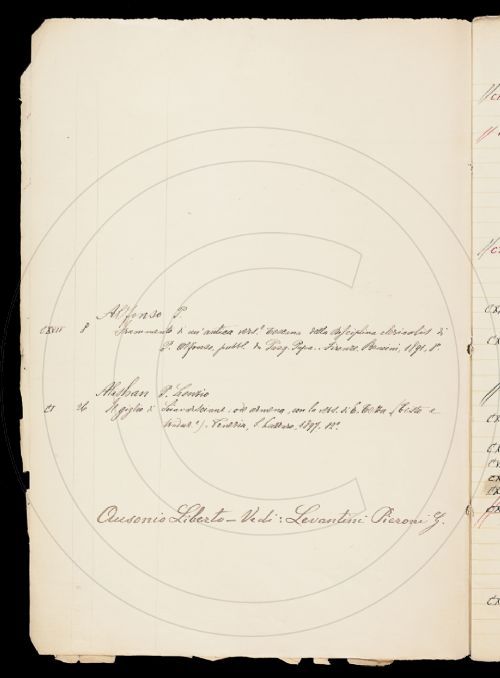 Alfonso P.
CXVII 8 Frammento di un'antica vers.e toscana della disciplina clericalis di
P. Alfonso, pubbl. da Pasq. Papa. Firenze, Bencini, 1891, 8°.
Alishan P. Leonzio
CI 26 Il giglio di ode armena, con la vers. di E. Teza (Testo e
traduz.e). Venezia, S. Lazzaro, 1897. 12°.
Ausonio Liberto - Vedi: Levantini Pieroni G.